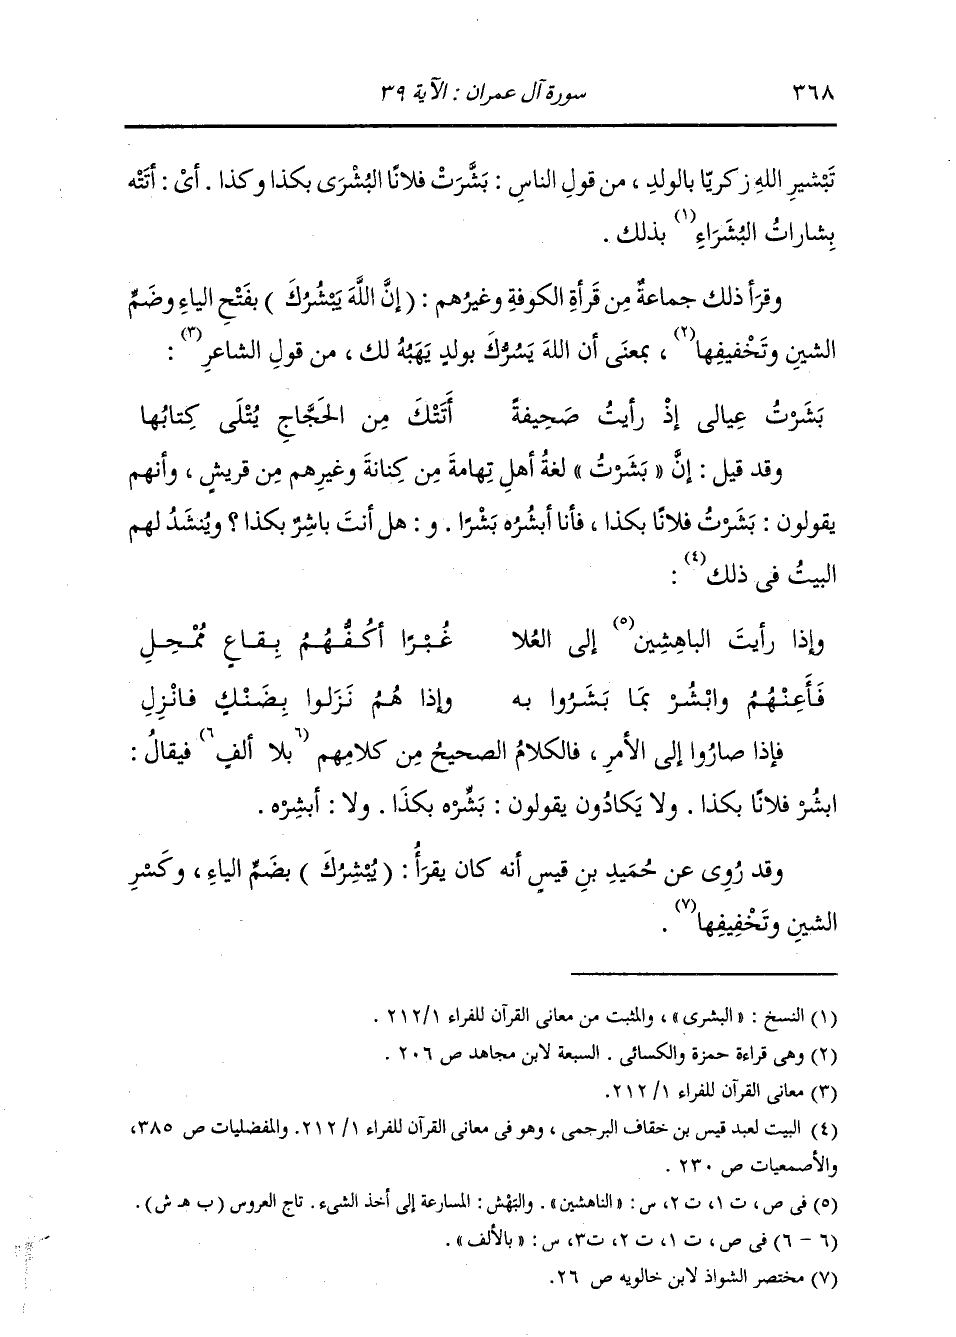 ٣٦٨ سورة آل عمران : الآية ٣٩
تَبْشيرِ اللهِ زكريّا بالولدِ ، من قولِ الناسِ : بَشَّرَتْ فلانًا البُشْرَى بكذا وكذا . أىْ : أتَتْه
بِشاراتُ البُشَرَاءِ(١) بذلك .
وقرَأ ذلك جماعةٌ مِن قَرأةِ الكوفةِ وغيرُهم : ( إنَّ اللَّهَ يَبْشُرُكَ ) بفَتْحِ الياءِ وضَمِّ
الشينِ وتَخْفيفِها(٢) ، بمعنَى أن اللهَ يَسُرُّكَ بولدٍ يَهَبُهُ لك ، من قولِ الشاعرِ(٣) :
بَشَرْتُ عِيالى إذْ رأيتُ صَحِيفةً أَتَتْكَ مِن الحَجَّاجِ يُتْلَى كِتابُها
وقد قيل : إنَّ « بَشَرْتُ » لغةُ أهلِ تِهامةَ مِن كِنانةَ وغيرِهم مِن قريشٍ ، وأنهم
يقولون : بَشَرْتُ فلانًا بكذا ، فأنا أبشُرُه بَشْرًا . و : هل أنتَ باشِرٌ بكذا ؟ ويُنشَدُ لهم
البيتُ فى ذلك(٤) :
وإذا رأيتَ الباهِشِين(٥) إلى العُلا غُبْرًا أكُفُّهُمُ بِقاعٍ مُمْحِلِ
فَأَعِنْهُمُ وابْشُرْ بمَا بَشَرُوا به وإذا هُمُ نَزَلوا بِضَنْكٍ فانْزِلِ
فإذا صارُوا إلى الأمرِ ، فالكلامُ الصحيحُ مِن كلامِهم (٦بلا ألفٍ٦) فيقالُ :
ابشُرْ فلانًا بكذا . ولا يَكادُون يقولون : بَشِّرْه بكذَا . ولا : أبشِرْه .
وقد رُوِى عن حُمَيدِ بنِ قيسٍ أنه كان يقرَأُ : ( يُبْشِرُكَ ) بضَمِّ الياءِ ، وكَسْرِ
الشينِ وتَخْفِيفِها(٧) .
(١) النسخ : « البشرى » ، والمثبت من معانى القرآن للفراء ٢١٢/١ .
(٢) وهى قراءة حمزة والكسائى . السبعة لابن مجاهد ص ٢٠٦ .
(٣) معانى القرآن للفراء ١/ ٢١٢.
(٤) البيت لعبد قيس بن خفاف البرجمى ، وهو فى معانى القرآن للفراء ١/ ٢١٢. والمفضليات ص ٣٨٥،
والأصمعيات ص ٢٣٠ .
(٥) فى ص ، ت ١، ت ٢، س : « الناهشين » . والبَهْش : المسارعة إلى أخذ الشىء . تاج العروس ( ب هـ ش ) .
(٦ - ٦) فى ص ، ت ١، ت ٢، ت٣، س : « بالألف » .
(٧) مختصر الشواذ لابن خالويه ص ٢٦.